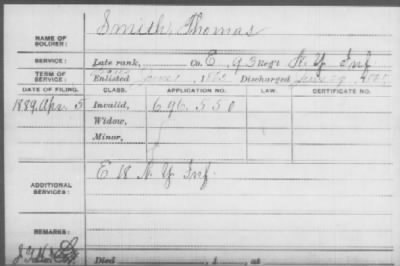 NAME OF SOLDIER: Smith, Thomas
SERVICE: Late rank, Co. E, 93 Reg't N.Y. Inf
TERM OF SERVICE: Enlisted Discharged
DATE OF FILING. CLASS. APPLICATION NO. LAW. CERTIFICATE NO.
1889, Apr. 5 Invalid, 696.550
Widow,
Minor,
ADDITIONAL SERVICES: E 18 N.Y. Inf.
REMARKS:
Died , 1 , at